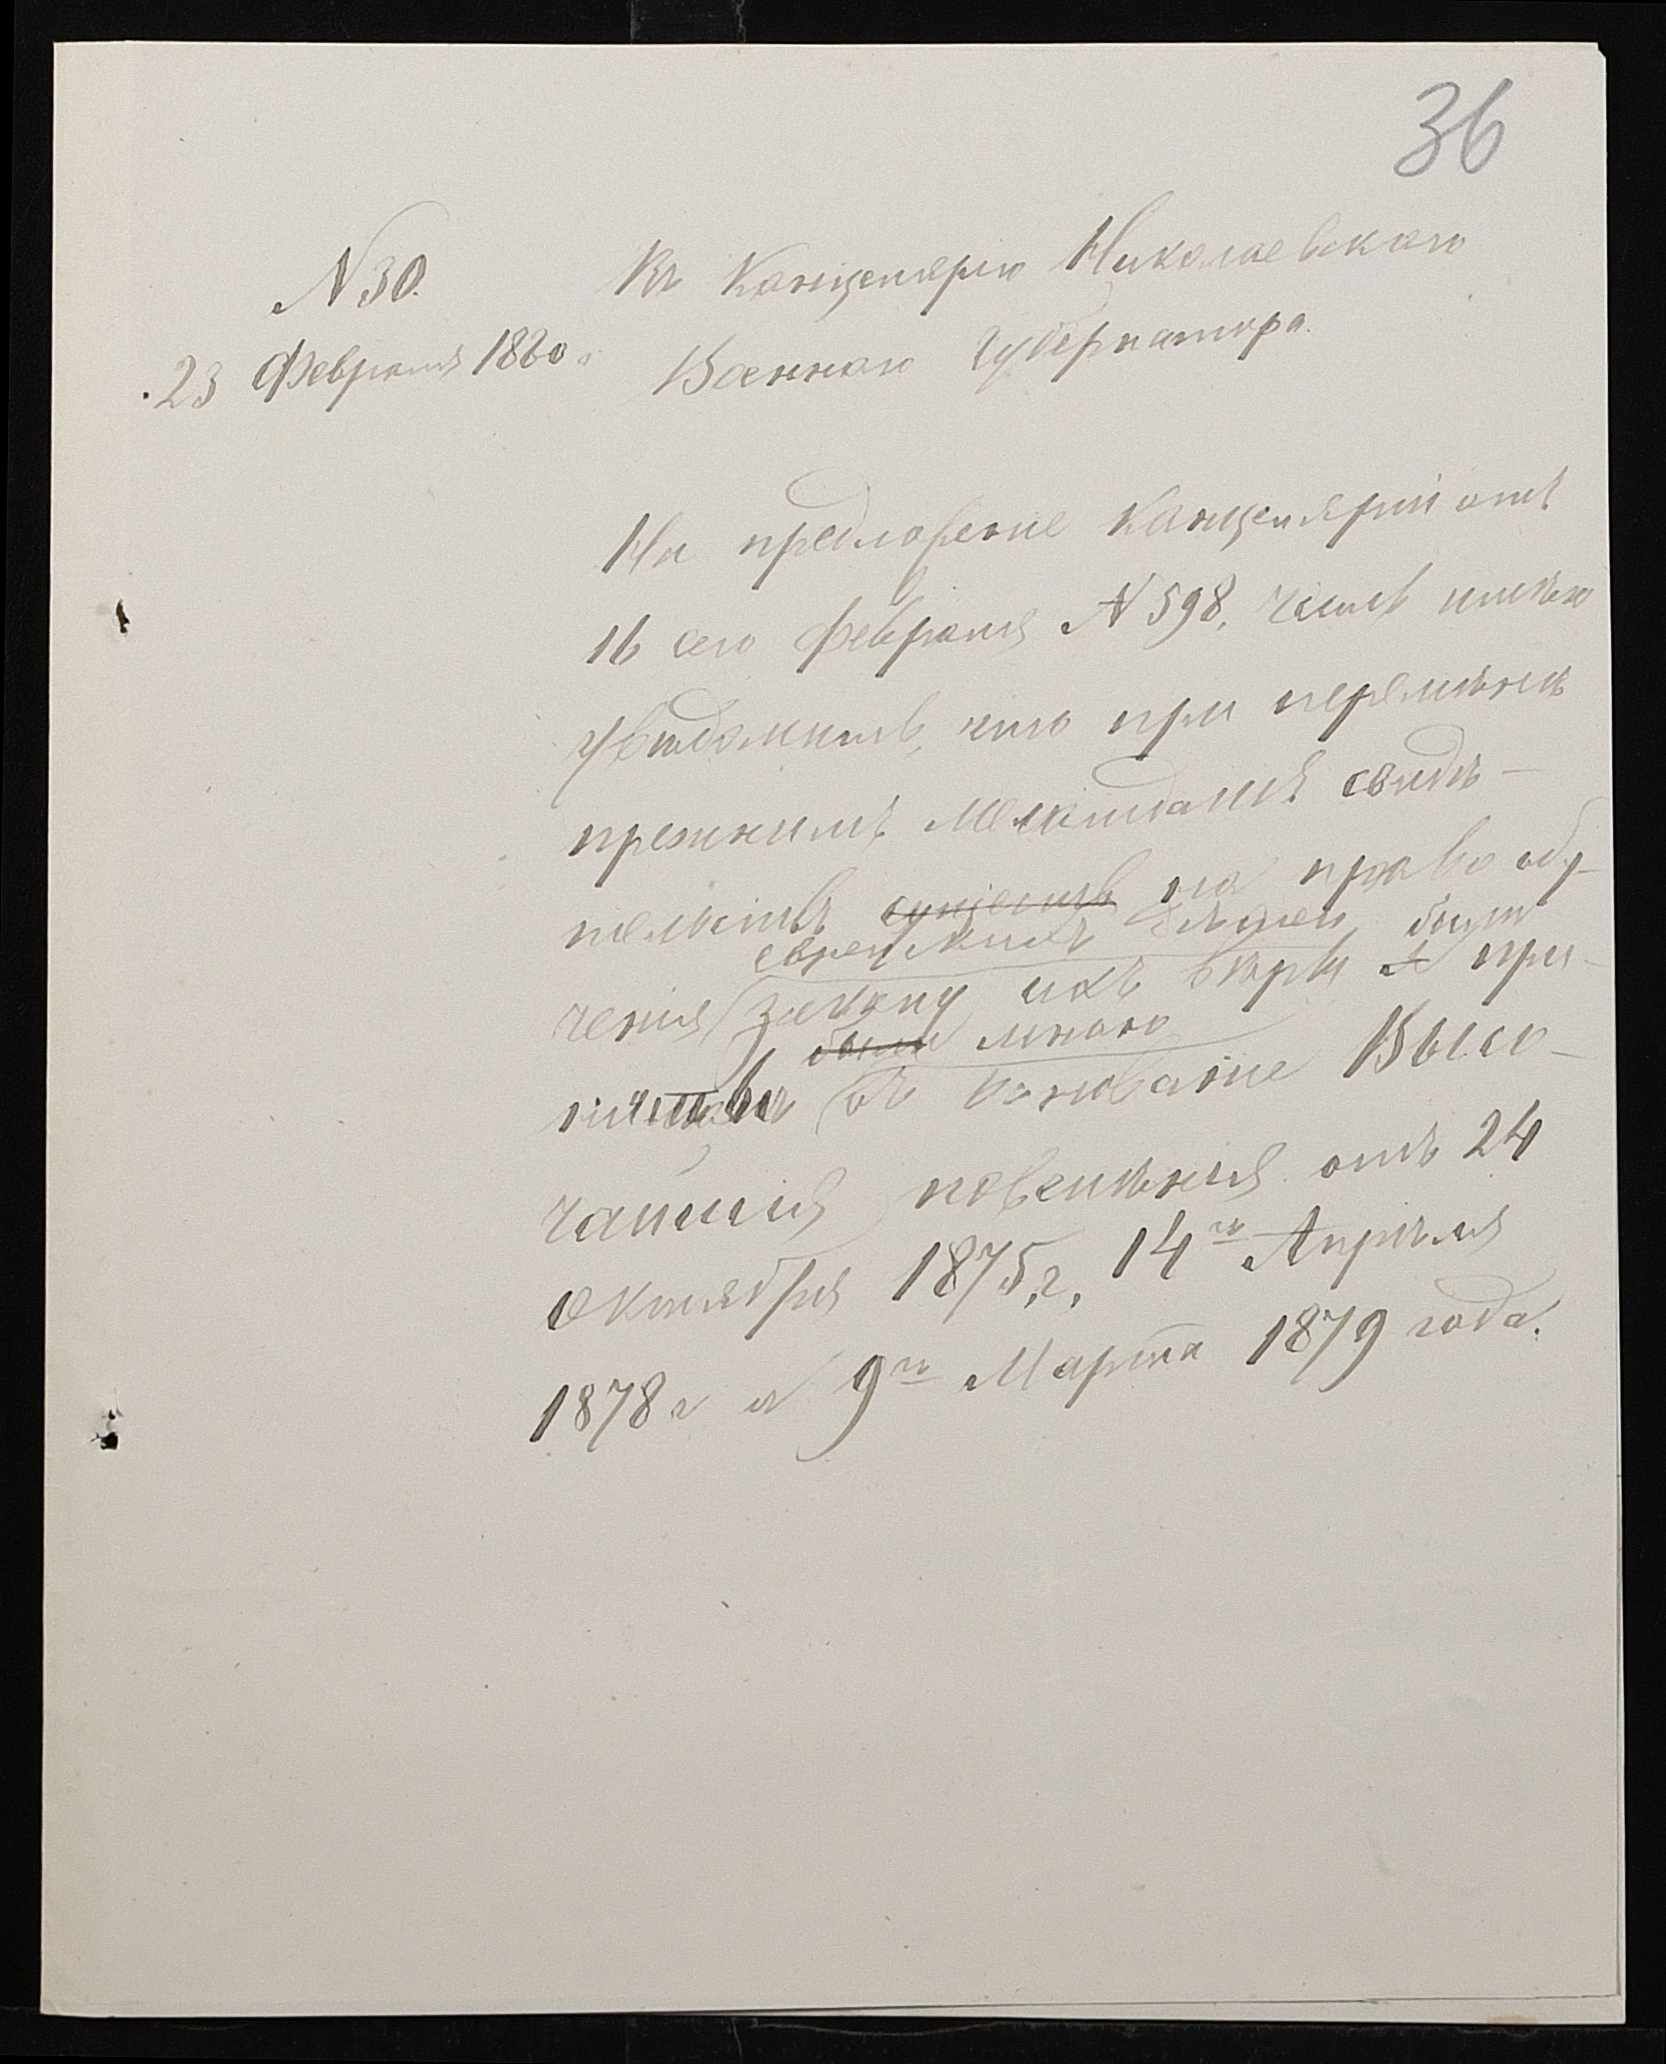 36
№ 30.
23 Февраля 1880 г.
Въ Канцелярію Николаевскаго
Военнаго Губернатора.
На предложеніе Канцеляріи отъ
16 сего Февраля № 598, честь имѣю
увѣдомить, что при перемѣнѣ
прежнимъ меламдамъ свидѣ-
тельствъ на право обу-
еврейскихъ дѣтей были
ченія закону ихъ вѣры при-
были мною
няты въ основаніе Высо-
чайшія повелѣнія отъ 24
октября 1875 г., 14го Апрѣля
1878 г и 9го Марта 1879 года.